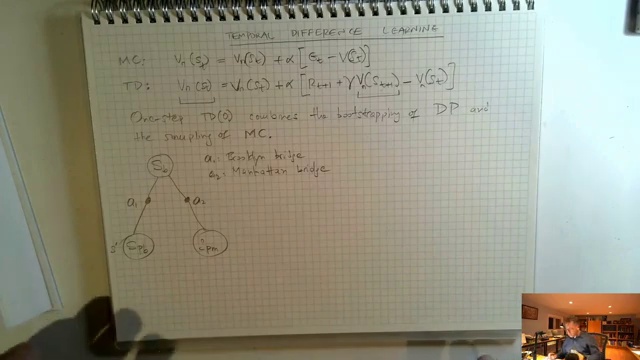 TEMPORAL DIFFERENCE LEARNING
MC: Vπ(St) = Vπ(St) + α [Gt − V(St)]
TD: Vπ(St) = Vπ(St) + α [Rt+1 + γ Vπ(St+1) − Vπ(St)]
One-step TD(0) combines the bootstrapping of DP and
the sampling of MC.
a1: Brooklyn bridge
a2: Manhattan bridge
a1
a2